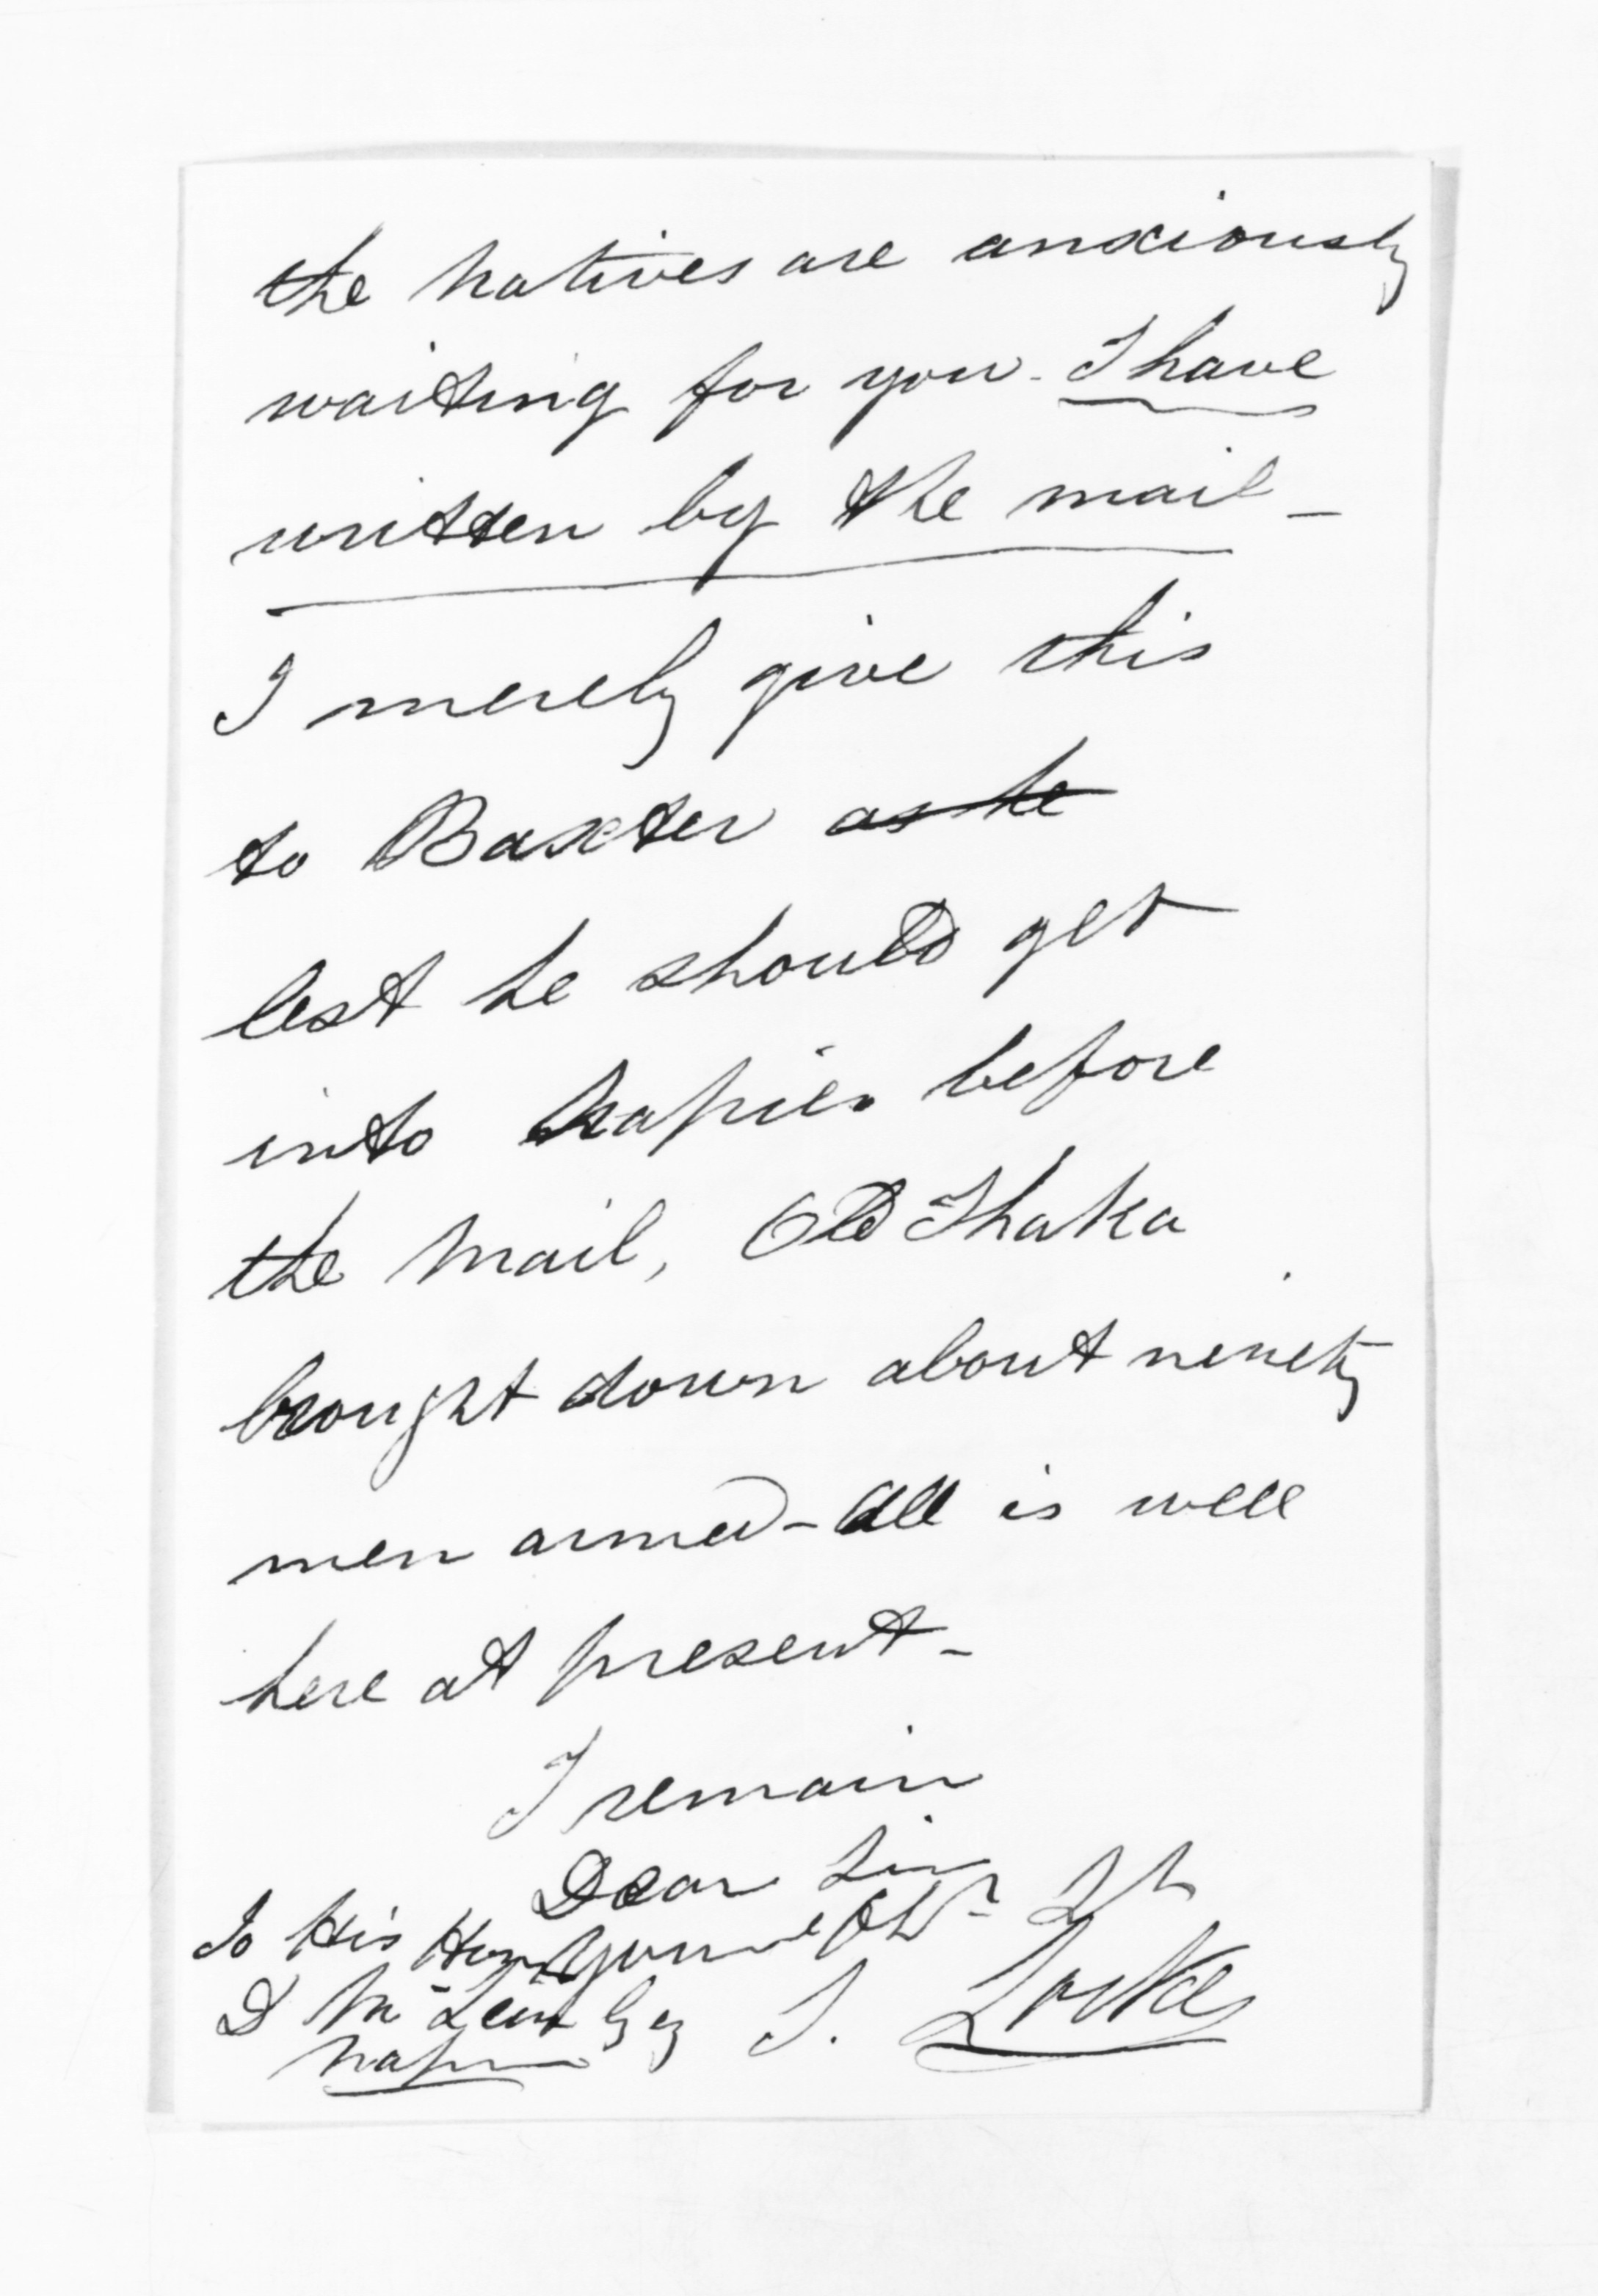 the natives are anxiously
waiting for you - I have
written by the mail -
I merely give this
to Baxter as he
lest he should get
into Napier before
the mail, Old Ihaka
brought down about ninety
men armed - All is well
here at present -
I remain
Dear Sir
To His Honr
D McLean Esq
Napier
S. Locke